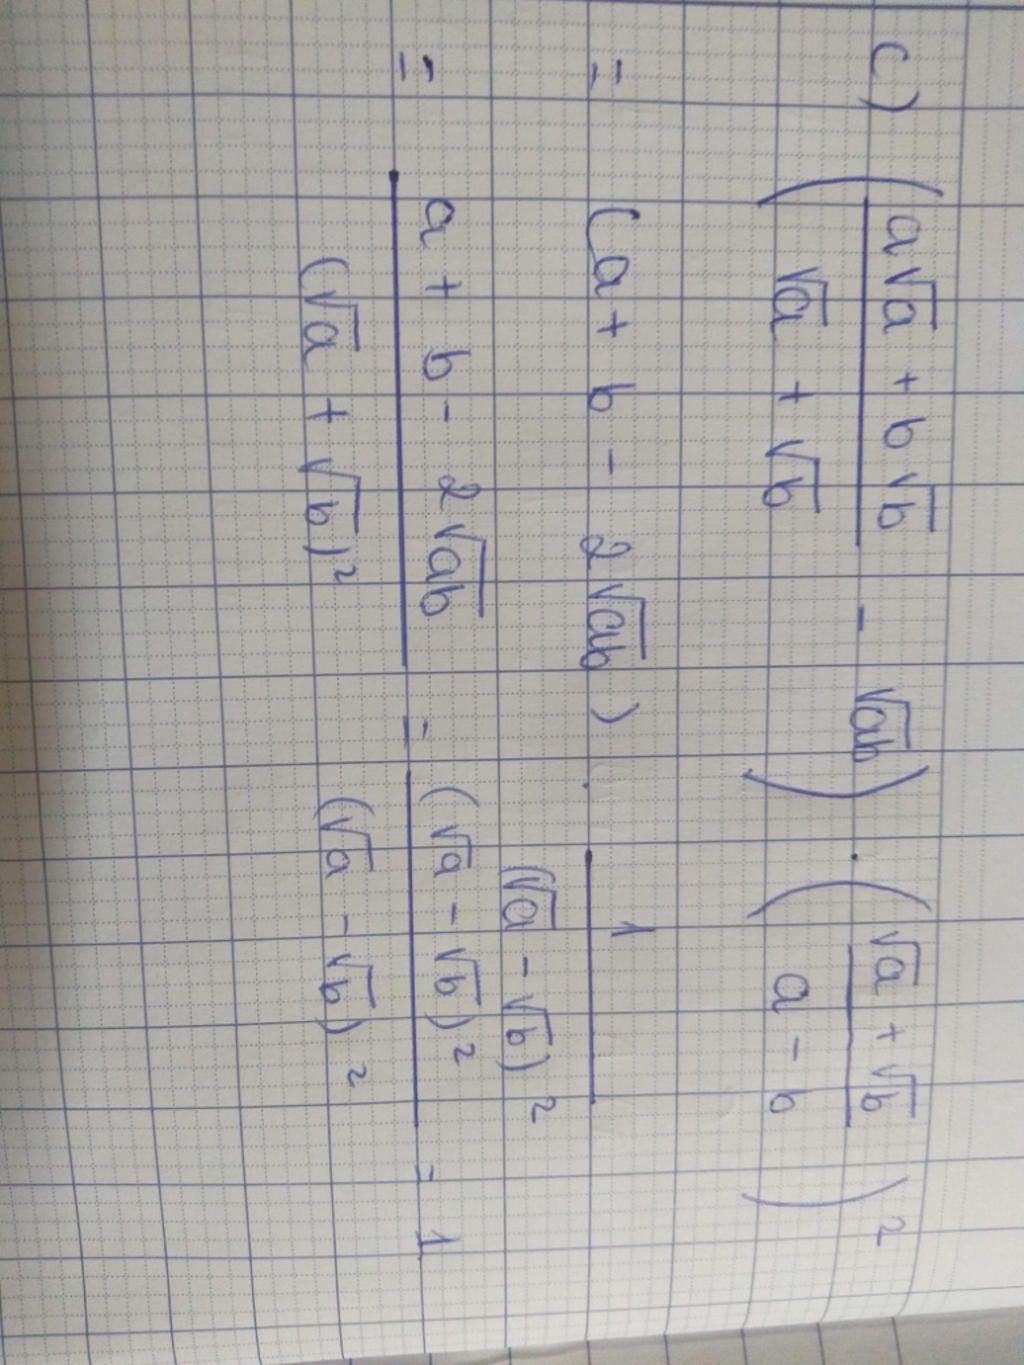 c) ( (a√a + b√b)/(√a + √b) - √ab ) · ( (√a + √b)/(a - b) )²
= (a + b - 2√ab) · 1/(√a - √b)²
= (a + b - 2√ab)/(√a + √b)² = (√a - √b)²/(√a - √b)² = 1